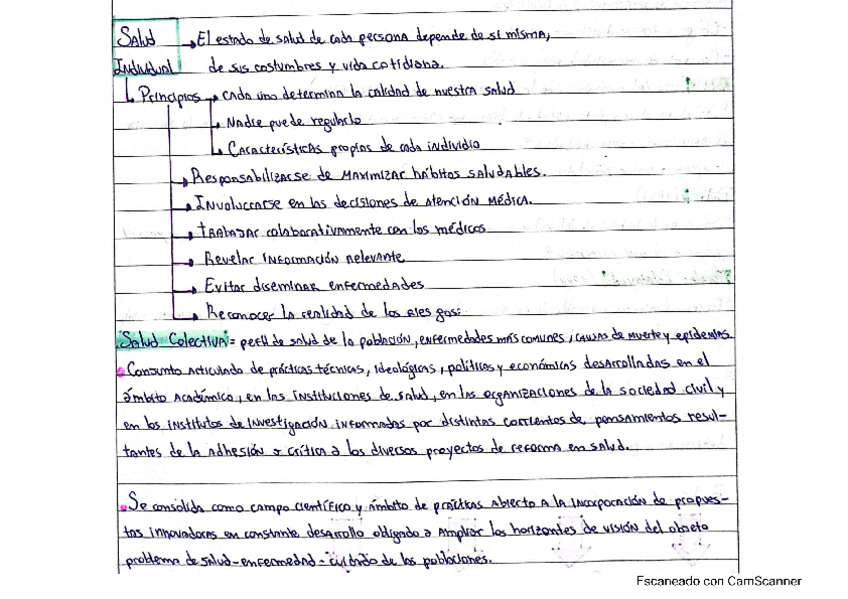 Salud → El estado de salud de cada persona depende de sí misma,
Individual de sus costumbres y vida cotidiana.
Principios → cada uno determina la calidad de nuestra salud
→ Nadie puede regularlo
→ Características propias de cada individio
→ Responsabilizarse de maximizar hábitos saludables.
→ Involucrarse en las decisiones de atención médica.
→ trabajar colaborativamente con los médicos
→ Revelar información relevante
→ Evitar diseminar enfermedades
→ Reconocer la realidad de los
Salud Colectiva = perfil de salud de la población, enfermedades más comunes, causas de muerte y epidemias.
• Conjunto articulado de prácticas técnicas, ideológicas, políticas y económicas desarrolladas en el
ámbito académico, en las instituciones de salud, en las organizaciones de la sociedad civil y
en los institutos de investigación informadas por distintas corrientes de pensamientos resul-
tantes de la adhesión o crítica a los diversos proyectos de reforma en salud.
• Se consolida como campo científico y ámbito de prácticas abierto a la incorporación de propues-
tas innovadoras en constante desarrollo obligado a ampliar los horizontes de visión del objeto
problema de salud-enfermedad-cuidado de las poblaciones.
Escaneado con CamScanner